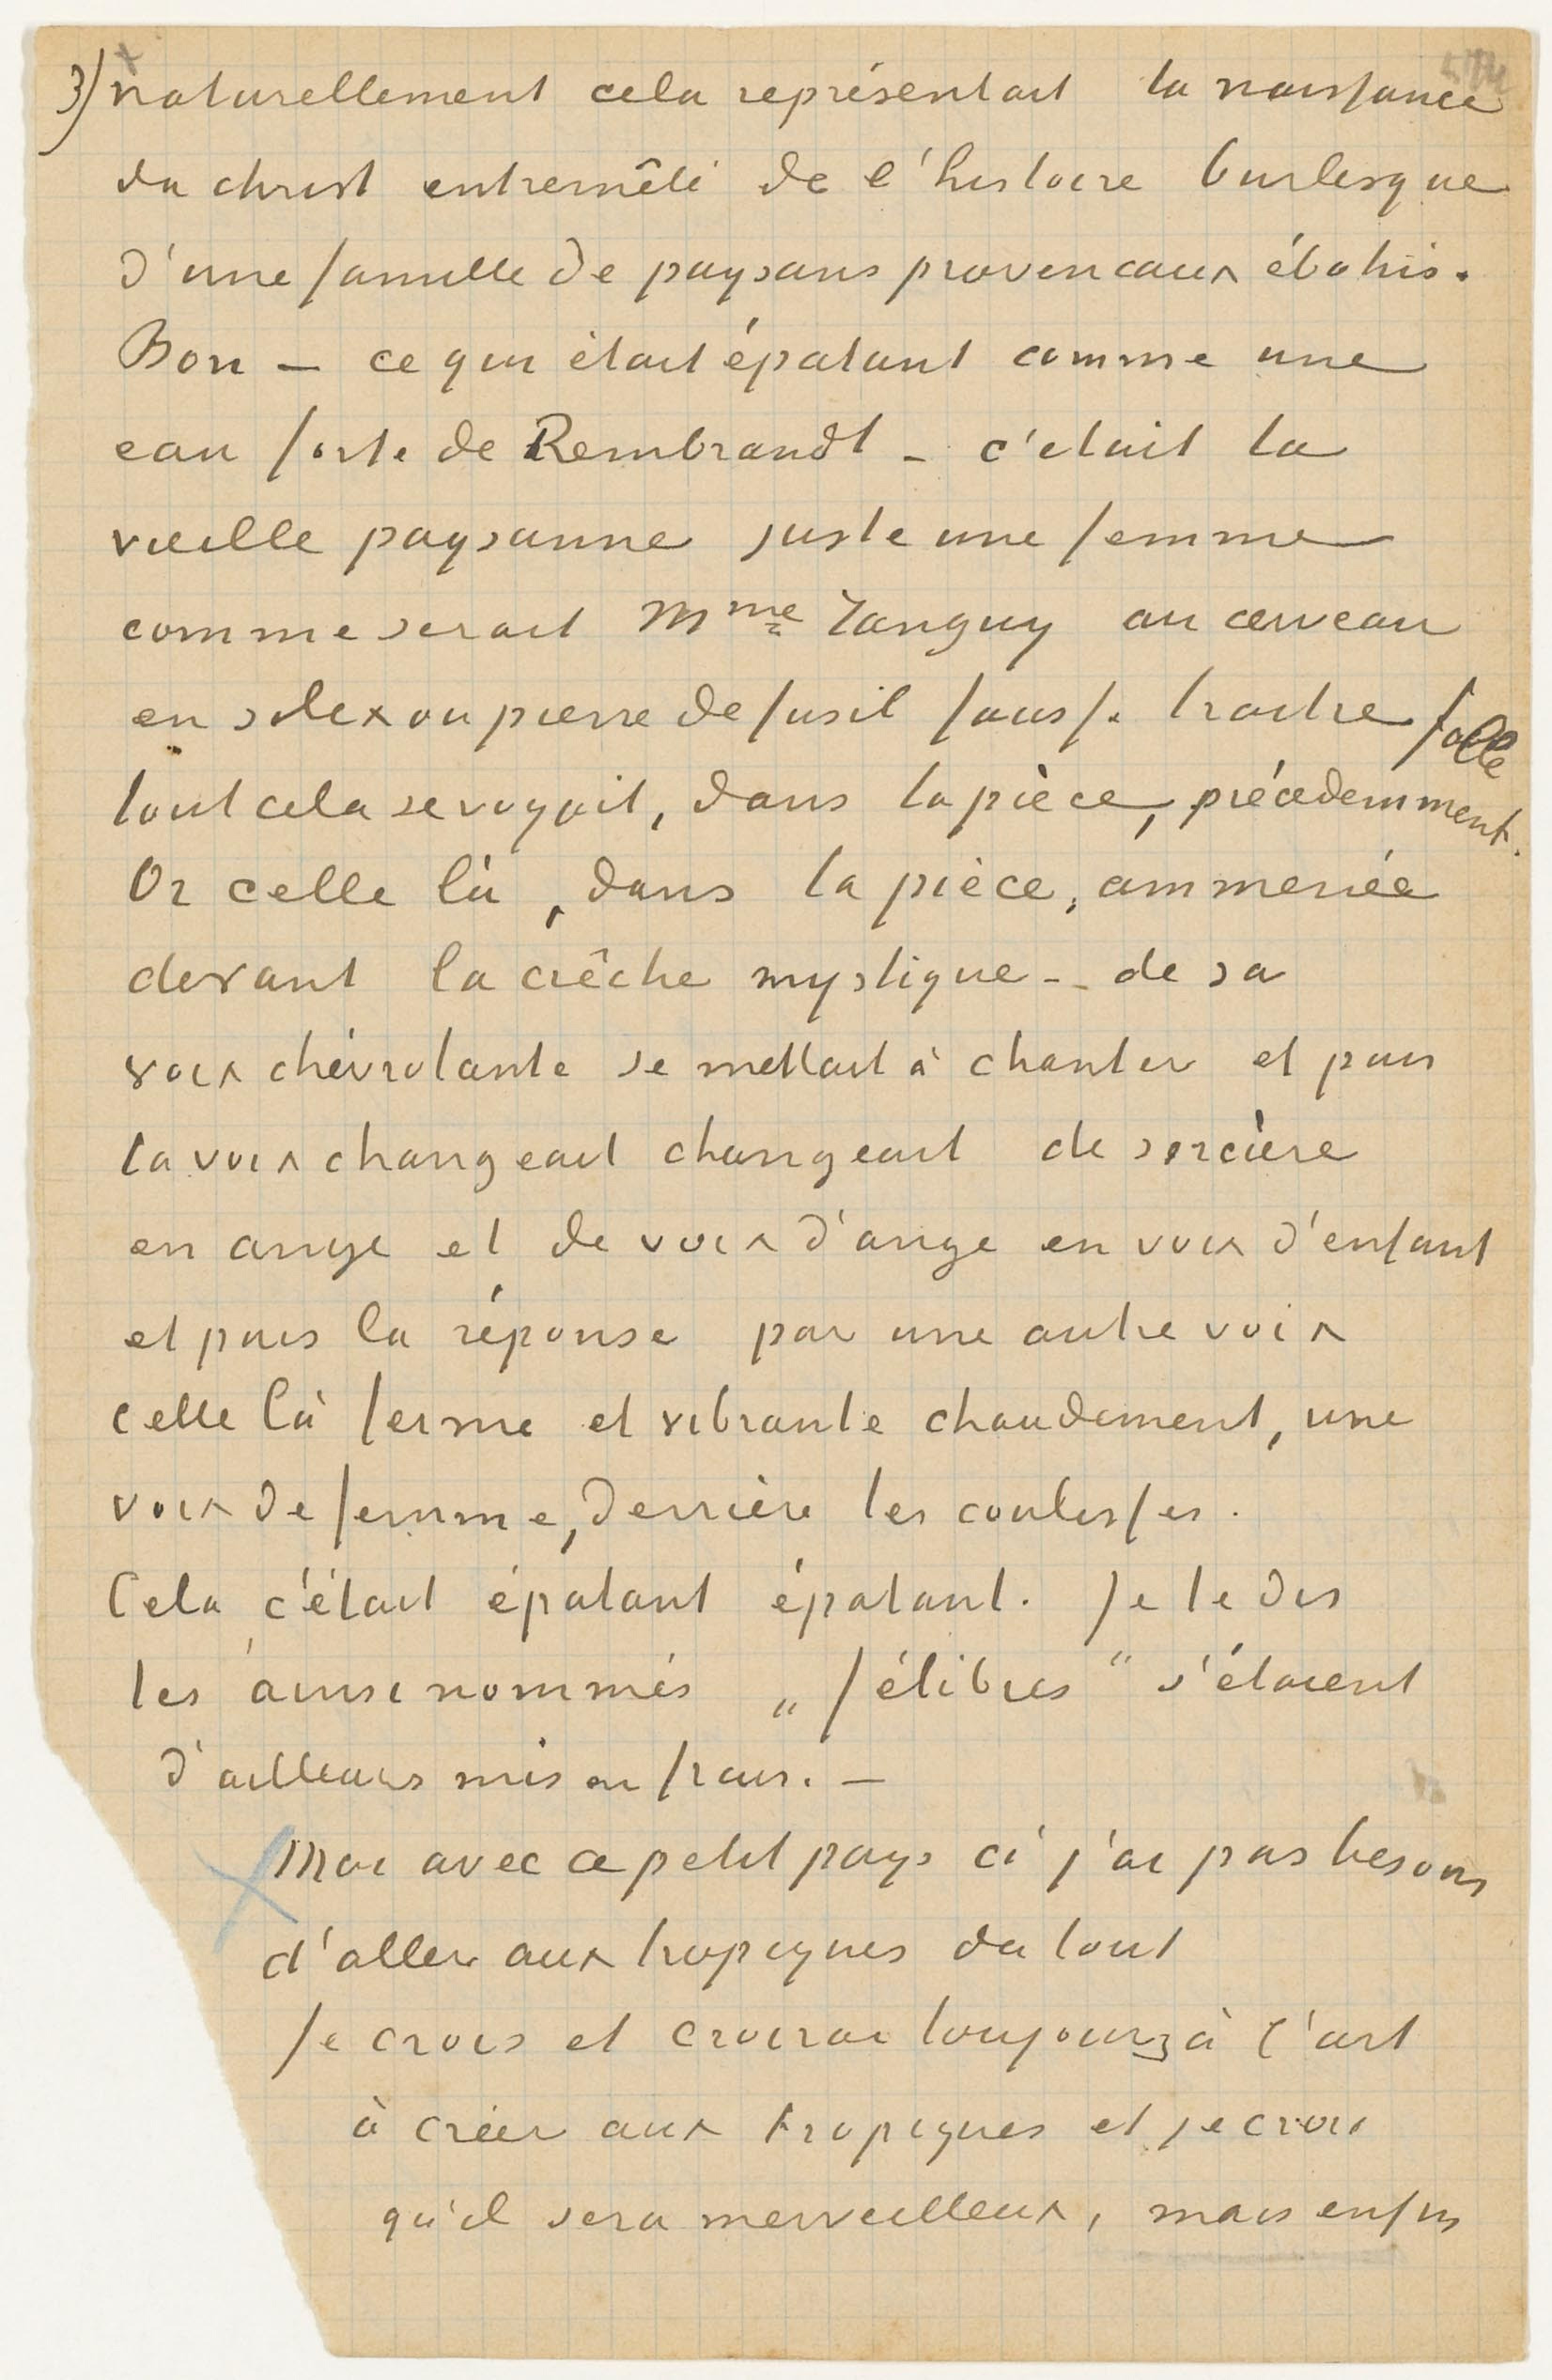 3) naturellement cela représentait la naissance
du christ entremêlé de l'histoire burlesque
d'une famille de paysans provencaux ébahis.
Bon – ce qui était épatant comme une
eau forte de Rembrandt – c'etait la
vieille paysanne juste une femme
comme serait Mme Tanguy au cerveau
en silex ou pierre de fusil fausse traitre folle
tout cela se voyait, dans la pièce, précedemment.
Or celle là, dans la pièce, ammenée
devant la crêche mystique – de sa
voix chévrotante se mettait à chanter et puis
la voix changeait changeait de sorcière
en ange et de voix d'ange en voix d'enfant
et puis la réponse par une autre voix
celle là ferme et vibrante chaudement, une
voix de femme, derrière les coulisses.
Cela c'était épatant épatant. Je te dis
les ainsi nommés „félibres" s'étaient
d'ailleurs mis en frais. –
Moi avec ce petit pays ci j'ai pas besoin
d'aller aux tropiques du tout
Je crois et croirai toujours à l'art
à créer aux tropiques et je crois
qu'il sera merveilleux, mais enfin